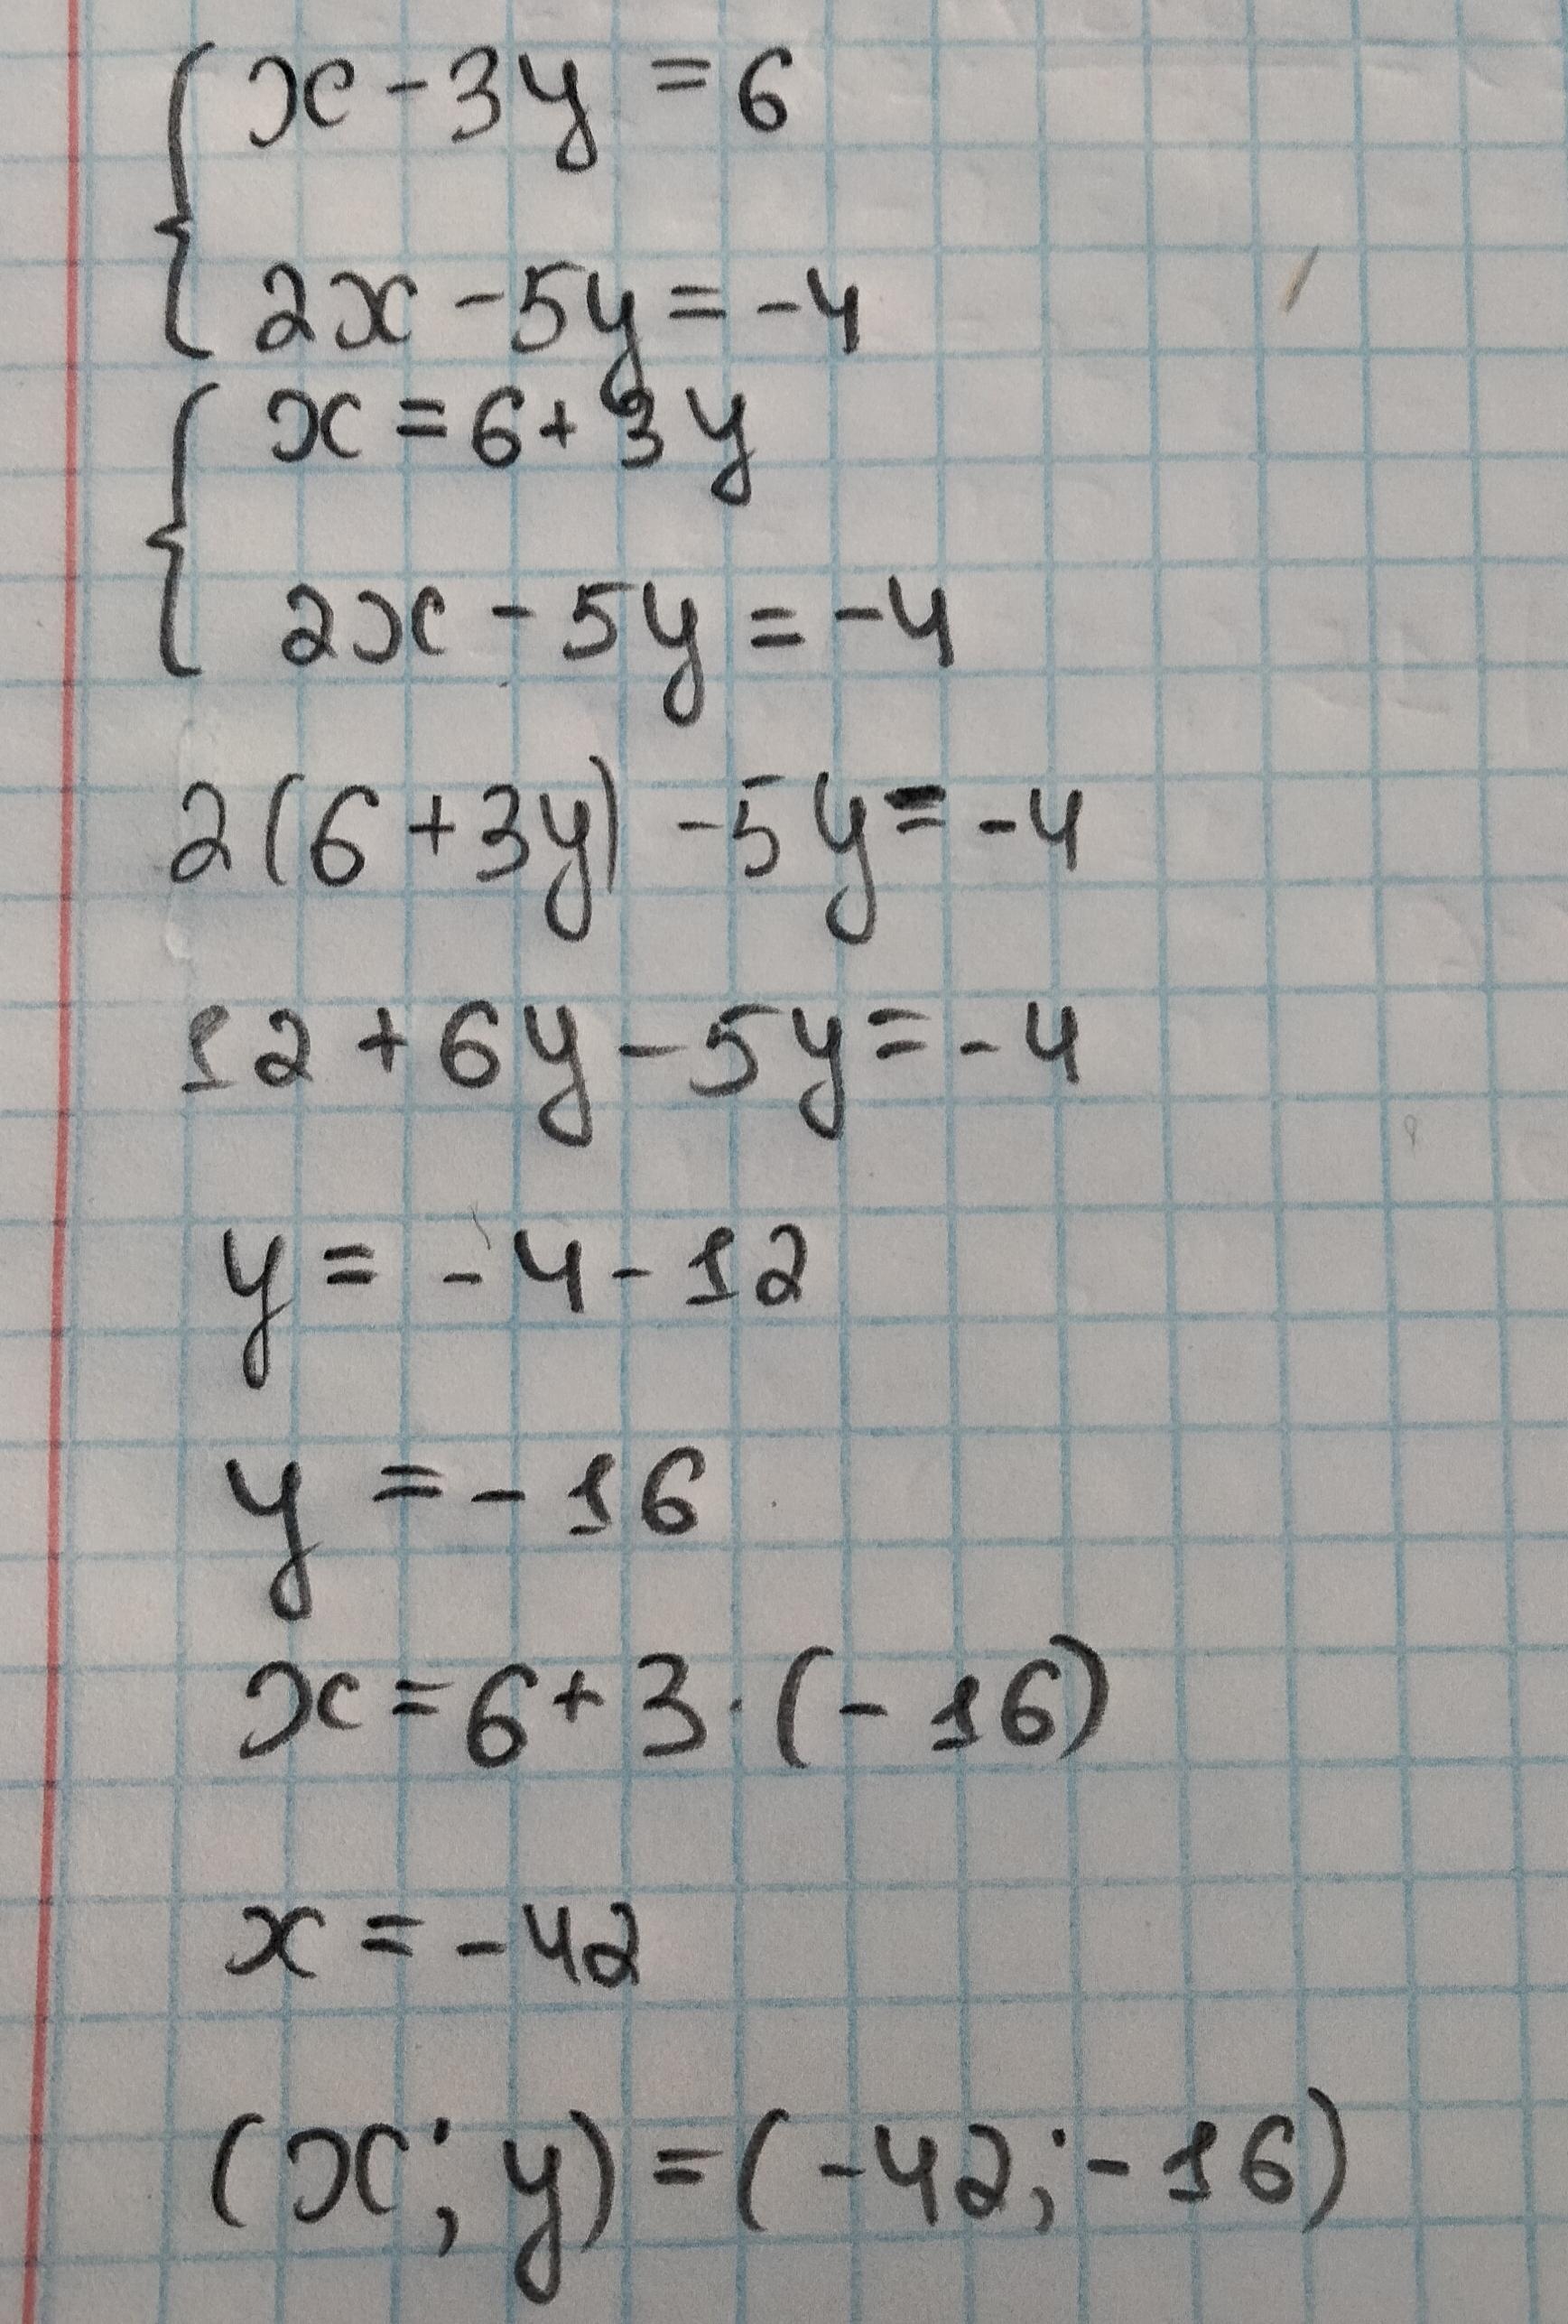 x - 3y = 6
2x - 5y = -4
x = 6 + 3y
2x - 5y = -4
2(6 + 3y) - 5y = -4
12 + 6y - 5y = -4
y = -4 - 12
y = -16
x = 6 + 3 · (-16)
x = -42
(x; y) = (-42; -16)